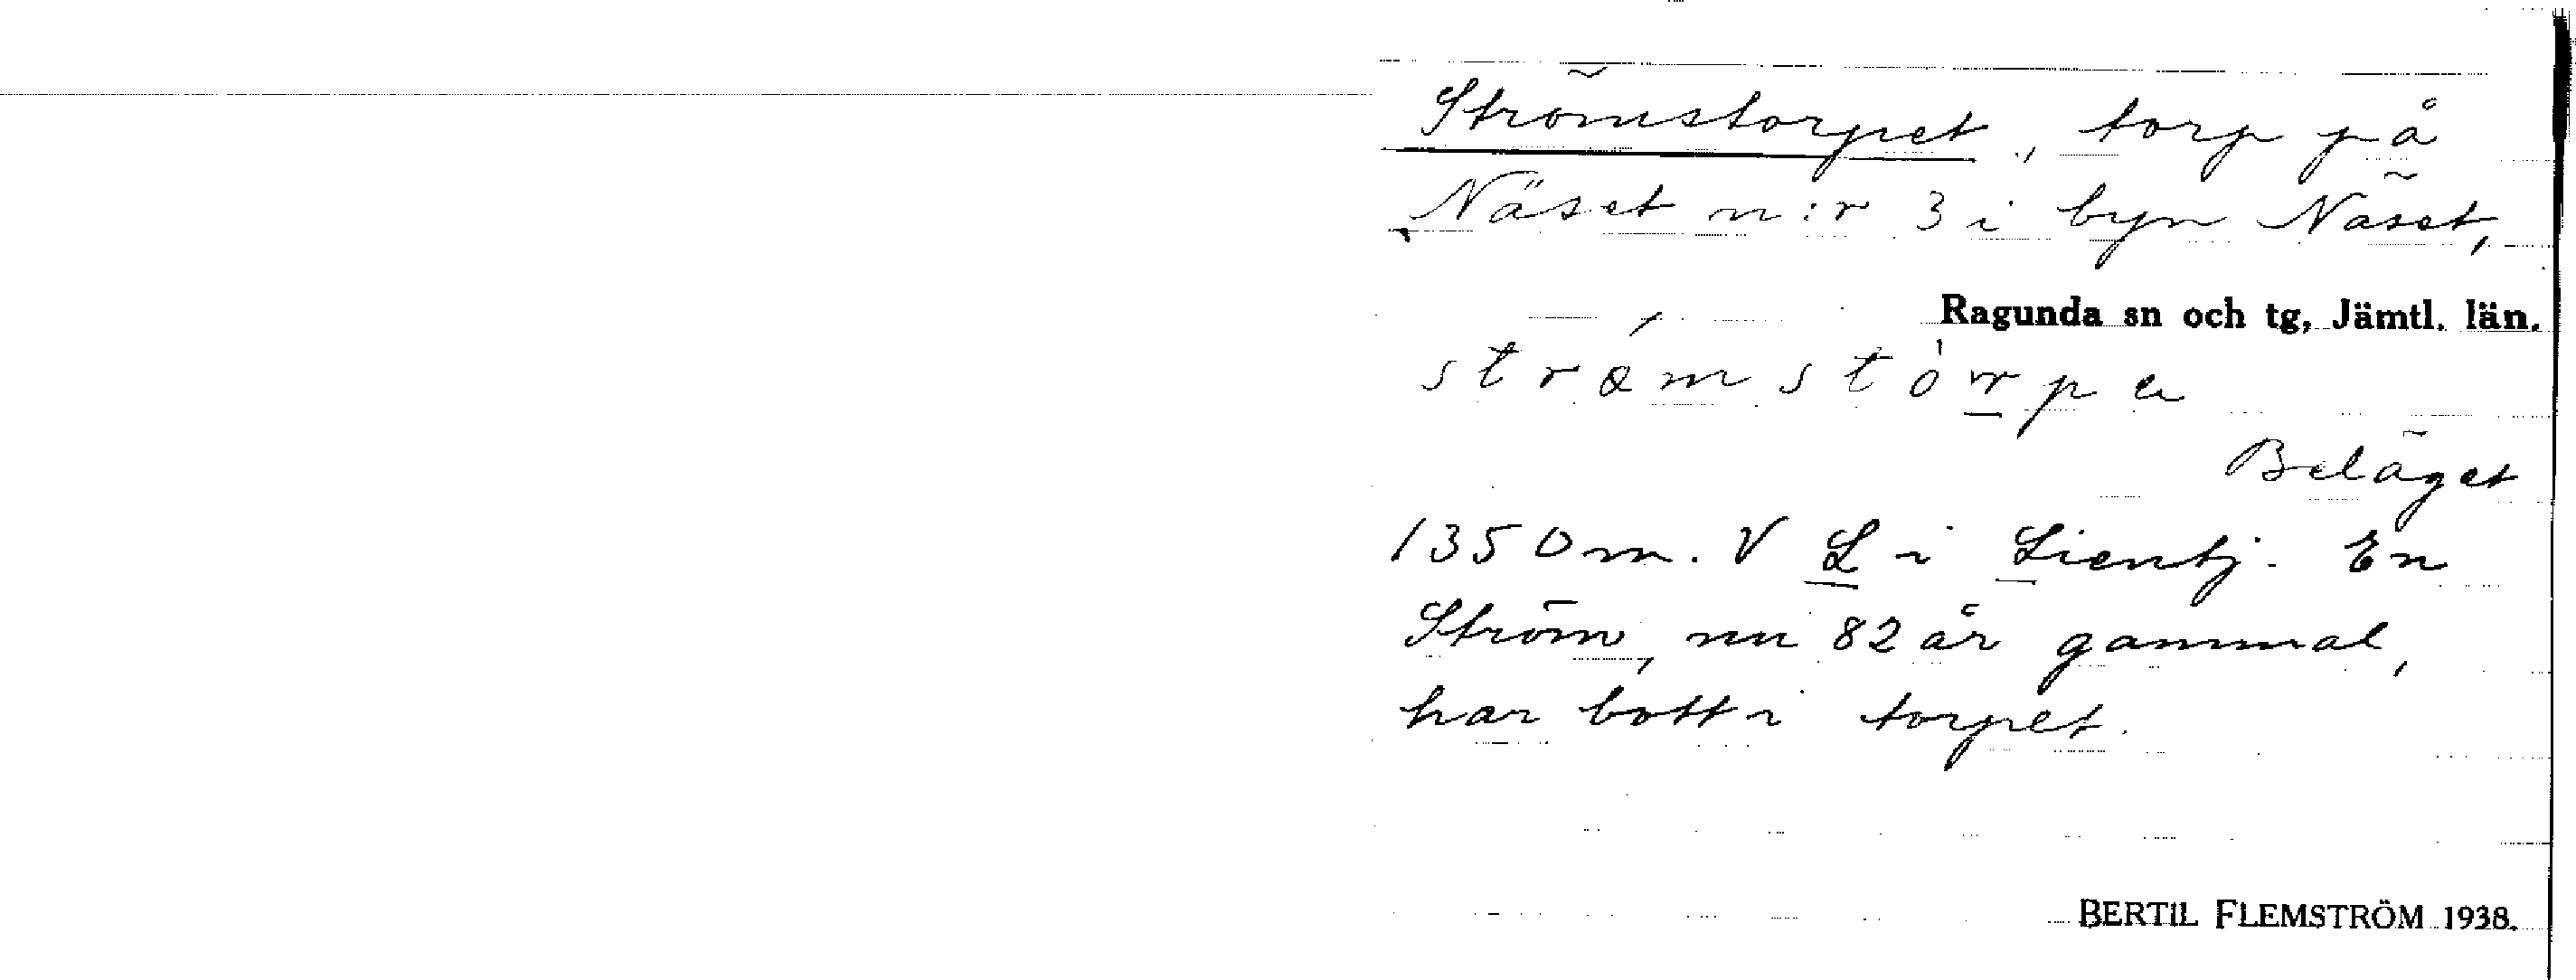 Strömstorpet, torp på
Näset n:r 3 i byn Näset,
Ragunda sn och tg, Jämtl. län.
Beläget
1350 m. V L i Lientj. En
Ström, nu 82 år gammal,
har bott i torpet.
BERTIL FLEMSTRÖM 1938.